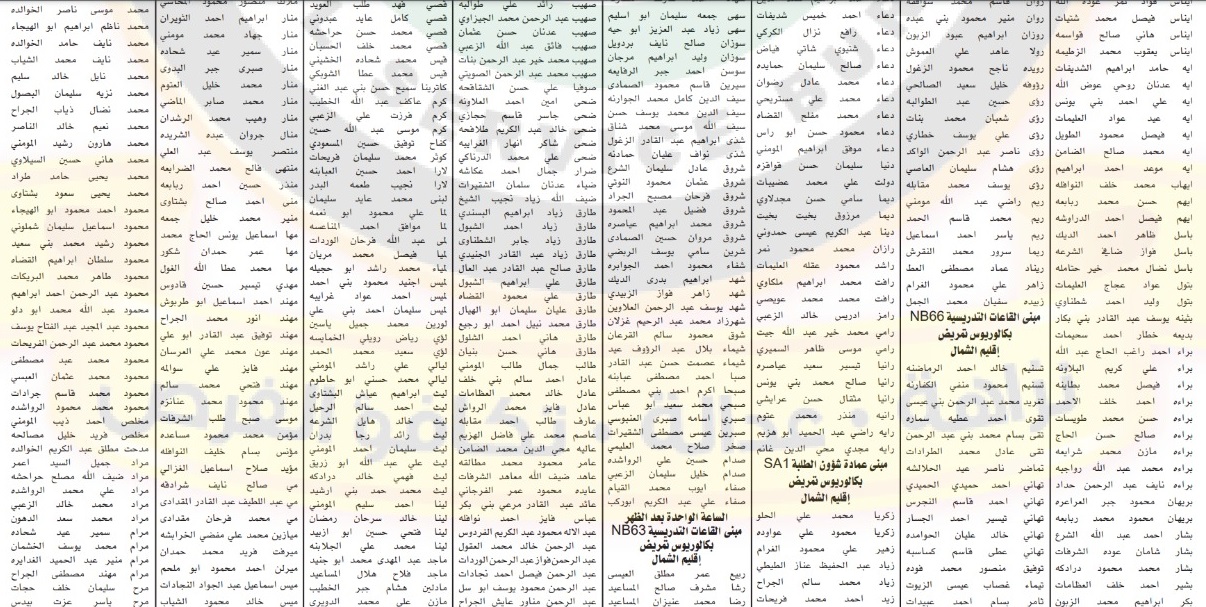 ايناس فؤاد نمر عوده الله
ايناس محمد فيصل محمد شتيات
ايناس هاني صالح قواسمه
ايناس يعقوب محمد الزطيمه
ايه حامد ابراهيم الشديفات
ايه عدنان روحي عوض الله
ايه علي احمد بني يونس
ايه عيد عواد العليمات
ايه فيصل محمود الطويل
ايه محمد صالح الضامن
ايه موعد احمد ابراهيم
ايهاب محمد خلف النوافله
ايهم حسن محمد ربابعه
ايهم فيصل احمد الدراوشه
باسل ظاهر احمد الديك
باسل فواز ضافي الشرعه
باسل نضال محمد خير حتامله
بتول عواد عجاج العليمات
بتول وليد احمد شطناوي
بثينه يوسف عبد القادر بني بكار
بديعه خطار احمد سحيمات
براء احمد راغب الحاج عبد الله
براء علي كريم البلاونه
براء فيصل محمد بطاينه
براءه احمد خلف الاحمد
براءه حسن محمد طويسات
براءه صالح حسن الحاج
براءه مازن محمد شرايعه
براءه محمد عبد الله رواجبه
براءه نايف عبد الرحمن حداد
بريهان محمود جبر العراعره
بريهان محمود محمد ربابعه
بشار احمد عبد الله الشرع
بشار شامان عوده الشرفات
بشار محمد محمود درادكه
بشير احمد خلف العظامات
بكر ابراهيم محمد الزبون
روان منير محمود بني عبده
روزان ابراهيم عبود الزبون
رولا عاهد علي العموش
رويده ناجح محمود الزغول
رؤوفه خليل سعيد الصالحي
رؤى حسين عبد الطوالبه
رؤى شعبان محمد بنات
رؤى علي يوسف خطاري
رؤى ناصر عبد الرحمن الواكد
رؤى هشام سليمان العاصي
رؤى يوسف محمد مقابله
ريم راضي عبد الله مومني
ريم محمد قاسم الحمد
ريم ياسر احمد اسماعيل
ريما سرور محمد النقرش
ريناد عماد مصطفى العط
زاهر علي محمود الغرام
زبيده سفيان محمد الجمل
مبنى القاعات التدريسية NB66
بكالوريوس تمريض
إقليم الشمال
تسنيم خالد احمد الرماضنه
تسنيم محمود منفي الكفارنه
تغريد محمد عبد الرحمن بني عيسى
تقوى احمد عطيه سماره
تقى بسام محمد بني عبد الرحمن
تقى عادل محمد الطرادات
تماضر ناصر عيد الحلالشه
تهاني احمد حميدي الحميدي
تهاني احمد قاسم النجرس
تهاني تيسير احمد الجسار
تهاني خالد عليان الحوامده
تهاني عطى قاسم كساسبه
توفيق منصور محمد فوده
تيماء غصاب عيسى الزيوت
ثامر بسام احمد عبيدات
دعاء احمد خميس شديفات
دعاء رافع نزال الكركي
دعاء شتيوي شاتي فياض
دعاء صالح سليمان حمايده
دعاء محمد عادل رضوان
دعاء محمد علي مستريحي
دعاء محمد مفلح القضاه
دعاء محمود حسن ابو راس
دعاء موفق ابراهيم المومني
دنيا سليمان حسن فواقزه
دولت علي محمد عضيبات
ديما سامي حسن مجدلاوي
ديما مرزوق بخيت بخيت
دينا عبد الكريم عيسى حمدوني
رازان محمود محمد نمر
راشد محمود عقله العليمات
رأفت محمد ابراهيم ملكاوي
رأفت محمد محمد عويصي
رامز ادريس خالد الزعبي
رامي محمد خير عبد الله جيت
رامي موسى ظاهر السميري
رانيا تيسير سعيد عياصره
رانيا صالح محمد بني يونس
رانيا مثقال حسن عرايشي
رانيه منذر محمد عتوم
رايه راضي عبد الحميد ابو هزيم
رايه مجدي محي الدين غانم
مبنى عمادة شؤون الطلبة SA1
بكالوريوس تمريض
إقليم الشمال
زكريا محمود علي الحلو
زكريا محمود علي عواوده
زهير علي محمود الغرام
زياد عبد الحفيظ عناز الطيطي
زياد محمد سالم الجراح
زيد احمد محمد فريحات
سهى جمعه سليمان ابو اسليم
سهى زياد عبد العزيز ابو حيه
سوزان صالح نايف بردويل
سوزان وليد ابراهيم مرجان
سوسن احمد جبر الرفايعه
سيرين قاسم محمود الصمادي
سيف الدين كامل محمد الجوارنه
سيف الدين محمد يوسف حسن
سيف الله موسى محمد شناق
شذى ابراهيم عبد القادر الزغول
شذى نواف عليان حمادنه
شروق عادل سليمان الشرع
شروق عثمان محمود التوني
شروق فرحان مصبح الجراد
شروق فضيل عيد المحمود
شروق محمد ابراهيم عياصره
شروق مروان حسين الصمادي
شرين سامي يوسف الربضي
شفاء محمود احمد الجوابره
شهد ابراهيم بدري الديك
شهد زاهر فواز الزبيدي
شهد يوسف عبد الرحمن العلاوين
شهرزاد محمد عبد الرحيم غزلان
شوق محمود سالم القرعان
شيماء بلال عبد الرؤوف عيد
شيماء عصمت حسن عبد القادر
صبا احمد مصطفى عبابنه
صبحا اكرم احمد بني مصطفى
صبحي محمد سعيد ابو عباس
صبري اسامه صبري العنبوسي
صبرين عيسى مصطفى الشقيرات
صخر صلاح محمد العليمي
صدام حسين علي الرواشده
صدام خليل سليمان الزعبي
صفاء ايوب محمد القيام
صفاء علي عبد الكريم ابوركب
الساعة الواحدة بعد الظهر
مبنى القاعات التدريسية NB63
بكالوريوس تمريض
إقليم الشمال
ربيع عمر مطلق العيسى
رشا مشرف صالح المساعيد
رضا محمد عنيزان المساعيد
صهيب رائد علي طوالبه
صهيب عبد الرحمن محمد الجيزاوي
صهيب عدنان حسن عثمان
صهيب فائق عبد الله الزعبي
صهيب محمد خير محمد عبد الرحمن بنات
صهيب محمد عبد الرحمن الصويتي
صوفيا علي حسن الشقافحه
ضحى امين احمد العلاونه
ضحى جاسر قاسم حجازي
ضحى خالد عبد الكريم طلافحه
ضحى شاكر انهار الغرايبه
ضحى علي محمد الدرناكي
ضرار جمال احمد عكاشه
ضياء عدنان سلمان الشقيرات
ضيف الله زياد نجيب الشيخ
طارق زياد ابراهيم البسندي
طارق زياد احمد الشبول
طارق زياد جابر الشطناوي
طارق زياد عبد القادر الجنيدي
طارق صالح عبد القادر عبد العال
طارق علي ابراهيم الشبول
طارق علي محمود القضاه
طارق عليان سليمان ابو الهيال
طارق محمد نبيل احمد ابو رجيع
طارق هاني احمد الشلول
طارق هاني حسن بنيان
طالب جمال طالب المومني
عادل احمد سالم بني خلف
عادل خالد محمد العظامات
عادل فايز محمد الرواش
عارف طالب احمد مقابله
عاصم محمد علي فاضل الهزيم
عاليه محي الدين محمد الضامن
عامر محمود محمد مطالقه
عاهد ضيف الله معاهد الشرفات
عايده محمود عمر الفرجاني
عائد عبد القادر مرعي بني بكر
عباس فايز احمد نوافله
عبد الاله محمود عبد الكريم الفردوس
عبد الرحمن خالد محمد العقول
عبد الرحمن فواز عبد الرحمن الوردات
عبد الرحمن فيصل احمد نجادات
عبد الرحمن محمود يوسف ابو سل
عبد الرحمن مناور عايش الجراح
قصي فهد طلب العويد
قصي كامل عايد عبدوني
قصي محمد حسن حراحشه
قصي محمد خلف الحسبان
قيس محمد شحاده الخشيني
قيس محمد عطا الشوبكي
كاترينا سميح حسن بني عبد الغني
كرم عاكف عبد الله الخطيب
كرم فرزت علي الزعبي
كرم موسى عبد الله حسين
كفاح توفيق حسين المسعودي
كوثر محمد سليمان فريحات
لارا احمد حسين العبابنه
لارا نجيب طعمه البدر
لبنى محمد عايد سليمان
لما علي محمود ابو نعمه
لما موافق احمد المناعسه
لمى عبد الله فرحان الوردات
لميا فيصل محمد مريان
لمياء محمد راشد ابو حجيله
لميس اجنيد محمود بني احمد
لميس احمد عوده غرايبه
لميس سليمان احمد بني علي
لورين محمد جميل ياسين
لؤي رياض رويلي الخمايسه
لؤي سعيد محمد الحمد
ليالي علي راشد المومني
ليالي محمد حسني ابو حاطوم
ليث ابراهيم عياش البشتاوي
ليث احمد سالم الرحيل
ليث خالد هايل الشرعه
ليث رائد رجا بدران
ليث سليمان احمد المومني
ليث علي عبد الله ابو زريق
ليث فهمي خالد درادكه
ليث محمد حمد بني ارشيد
لينا احمد سليم المومني
لينا خالد سرحان رمضان
لينا فتحي حسين ابو ازبيد
لينا محمد علي الجلابنه
ماجد عبد المهدي محمد ابو جنيد
ماجد فلاح هلال المساعيد
مادلين هشام جبر الخطيب
مازن علي محمد الدويري
ملاك منصور محمود المحاسي
منار ابراهيم احمد الثويران
منار جهاد محمد مومني
منار سمير عيد شحاده
منار صبري جبر البدوي
منار محمد خليل العتوم
منار محمد صابر الماضي
منار وهيب محمد الرشدان
منال جروان عبده الشريده
منتصر يوسف عبد العلي
منتهى فالح محمد الضرايعه
منذر حسين احمد ربابعه
منى احمد صالح بشتاوي
منير محمد خليل جمعه
مها اسماعيل يونس الحاج محمد
مها عمر حمدان شكور
مها محمد عطا الله الغول
مهدي تيسير حسين قادوس
مهند احمد اسماعيل ابو طربوش
مهند انور محمد الجراح
مهند توفيق عبد القادر ابو علي
مهند عون محمد علي العرسان
مهند فايز علي سوالمه
مهند فتحي محمد سالم
مهند محمود محمد عنانزه
موسى صبح طلب الشرفات
مؤمن محمد محمود مساعده
مؤنس بسام خليف النوافله
مؤيد صلاح اسماعيل الغزالي
مي صالح نايف شرادقه
مي عبد اللطيف عبد القادر المقدادي
مي محمد فرحان مقدادى
ميازين محمد علي مفضي الخرابشه
ميرفت فريد محمد حمدان
ميرلن احمد احمد محمود ابو ملحم
ميس اسماعيل عبد الجواد النجادات
ميس خالد محمود الشياب
محمد موسى ناصر الخوالده
محمد ناظم ابراهيم ابو الهيجاء
محمد نايف حامد الخوالده
محمد نايف محمد الشياب
محمد نايل خالد سليم
محمد نزيه سليمان البصول
محمد نضال ذياب الجراح
محمد نعيم خالد الناصر
محمد هارون رشيد المومني
محمد هاني حسين السيلاوي
محمد يحيى حامد طراد
محمد يحيى سعود بشتاوى
محمود احمد محمود ابو الهيجاء
محمود اسماعيل سليمان شملوني
محمود رشيد محمد بني سعيد
محمود سلطان ابراهيم القضاه
محمود طاهر محمد البريكات
محمود عبد الرحمن احمد ابراهيم
محمود عبد الله محمد ابو دلو
محمود عبد المجيد عبد الفتاح يوسف
محمود محمد عبد الرحمن الفريحات
محمود محمد عبد مصطفى
محمود محمد عثمان العبسي
محمود محمد قاسم جرادات
محمود محمد محمود الرواشده
مخلص احمد ذيب المومني
مخلص فريد خليل مصالحه
مدحت مطلق عبد الكريم الخوالده
مراد جميل السيد اعمر
مراد ضيف الله مصلح حراحشه
مراد علي محمد الرواشده
مراد محمد خالد الزعبي
مراد محمد سعد الدهون
مرام سمير عيد شحاده
مرام محمد يوسف الخشمان
مرام منير عبد الحميد الغدايره
مرام مهند مصطفى الجراح
مرح سليمان خلف حجات
مرح ياسر عزت بيدس
نزاهة • عدالة • تكافؤ الفرص